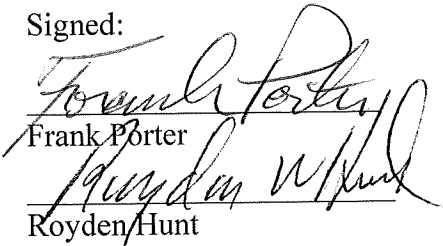 Signed:
Frank Porter
Frank Porter
Royden W Hunt
Royden Hunt